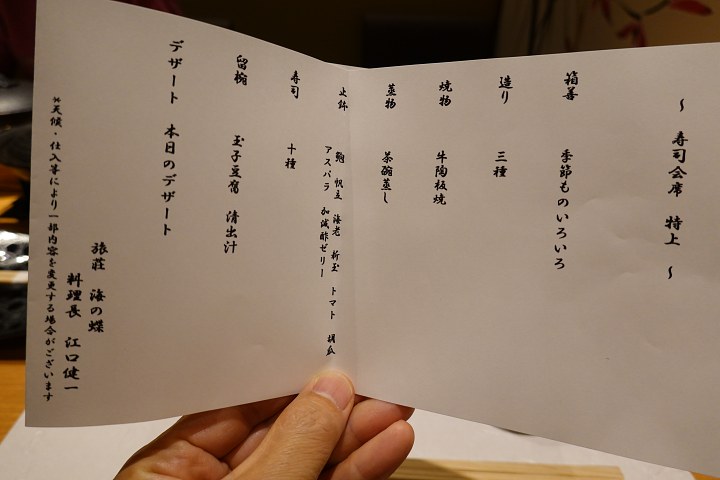 ～ 寿司会席 特上 ～
箱善 季節ものいろいろ
造り 三種
焼物 牛陶板焼
蒸物 茶碗蒸し
止鉢 鮑 帆立 海老 新玉 トマト 胡瓜
アスパラ 加減酢ゼリー
寿司 十種
留椀 玉子豆腐 清出汁
デザート 本日のデザート
旅荘 海の蝶
料理長 江口健一
※天候・仕入等により一部内容を変更する場合がございます